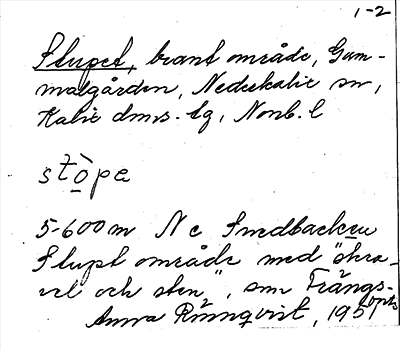 1-2
Stupet, brant område, Gam-
malgården, Nederkalix sn,
Kalix dmrs. tg, Norrb. l
stòpe
5-600 m N e Smedbacken
Stupt område med "skra-
vel och sten", som Trångs-
Anna Rönnqvist, 1951